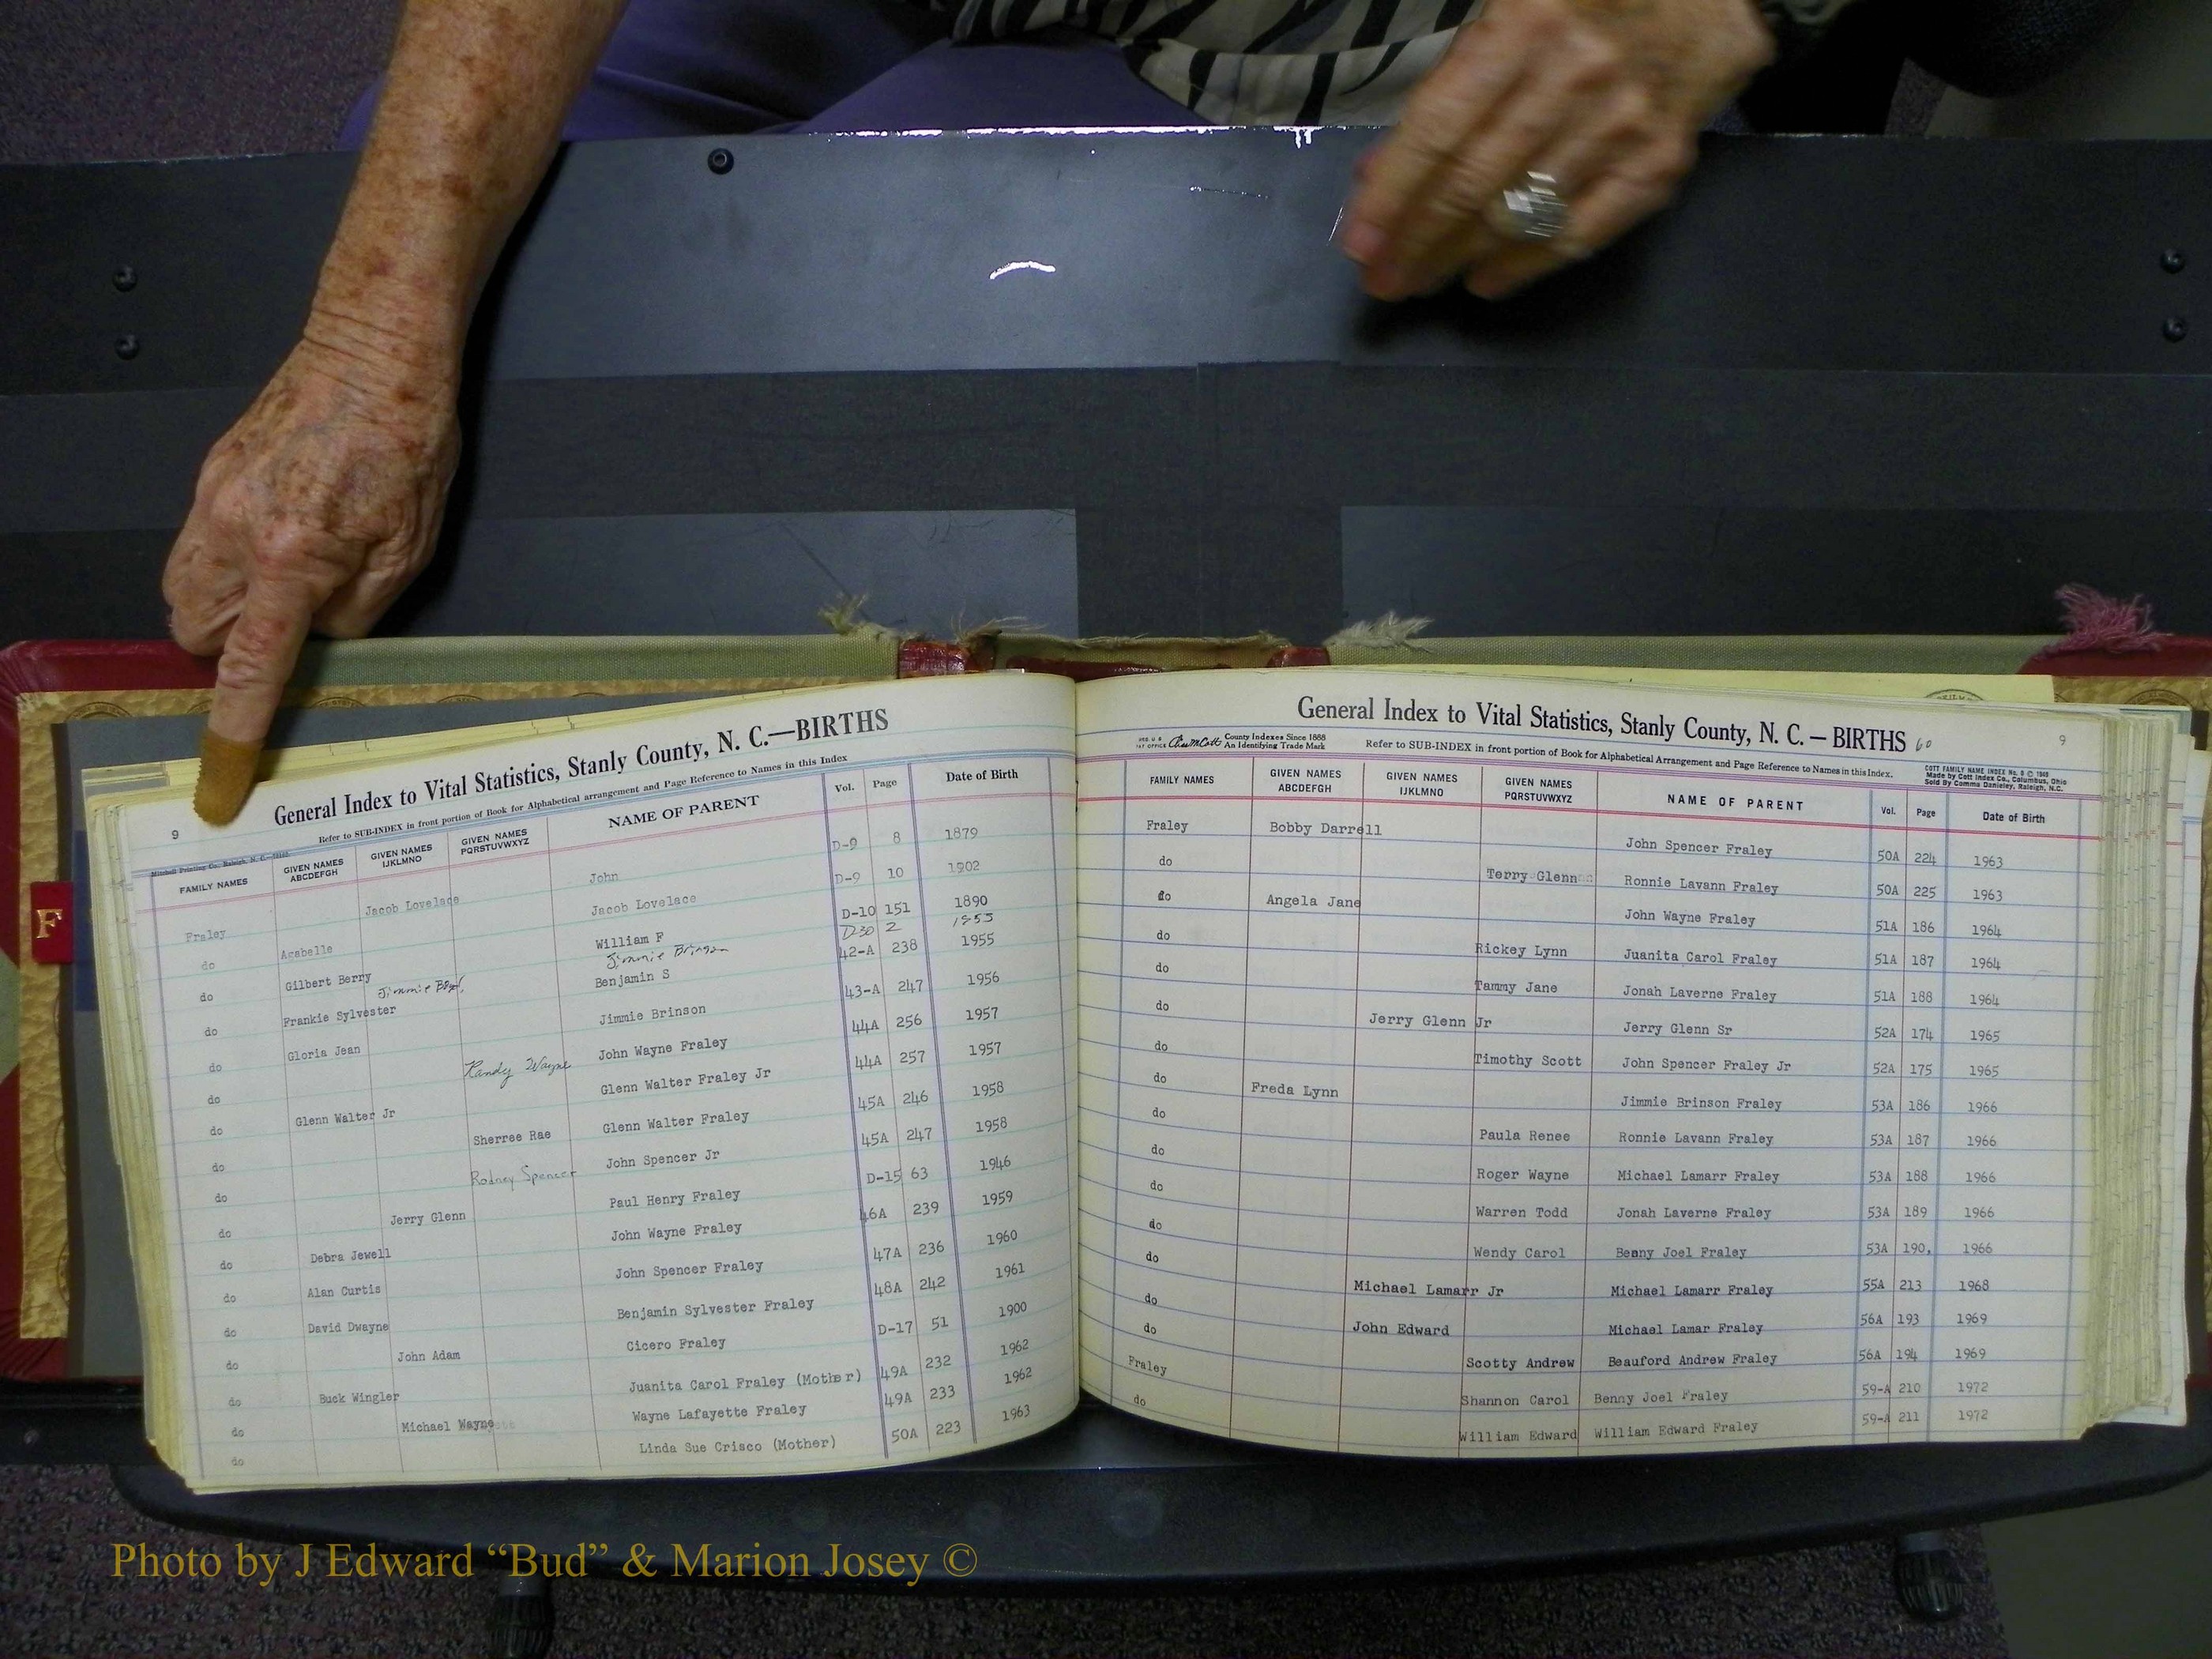 General Index to Vital Statistics, Stanly County, N. C.—BIRTHS
9
Refer to SUB-INDEX in front portion of Book for Alphabetical arrangement and Page Reference to Names in this Index
Mitchell Printing Co., Raleigh, N. C.
FAMILY NAMES GIVEN NAMES ABCDEFGH GIVEN NAMES IJKLMNO GIVEN NAMES PQRSTUVWXYZ NAME OF PARENT Vol. Page Date of Birth
Fraley Jacob Lovelace John D-9 8 1879
do Acabelle Jacob Lovelace D-9 10 1902
do Gilbert Berry William F D-10 151 1890
Jimmie Boyd, Jimmie Brinson D-30 2
do Frankie Sylvester Benjamin S 42-A 238 1955
do Gloria Jean Jimmie Brinson 43-A 247 1956
do Randy Wayne John Wayne Fraley 44A 256 1957
do Glenn Walter Jr Glenn Walter Fraley Jr 44A 257 1957
do Sherree Rae Glenn Walter Fraley 45A 246 1958
do Rodney Spencer John Spencer Jr 45A 247 1958
do Jerry Glenn Paul Henry Fraley D-15 63 1946
do Debra Jewell John Wayne Fraley 46A 239 1959
do Alan Curtis John Spencer Fraley 47A 236 1960
do David Dwayne Benjamin Sylvester Fraley 48A 242 1961
do John Adam Cicero Fraley D-17 51 1900
do Buck Wingler Juanita Carol Fraley (Mother) 49A 232 1962
do Michael Wayne Wayne Lafayette Fraley 49A 233 1962
do Linda Sue Crisco (Mother) 50A 223 1963
F
General Index to Vital Statistics, Stanly County, N. C. — BIRTHS 60
9
County Indexes Since 1888
An Identifying Trade Mark
Refer to SUB-INDEX in front portion of Book for Alphabetical Arrangement and Page Reference to Names in this Index.
COTT FAMILY NAME INDEX No. 8 © 1948
Made by Cott Index Co., Columbus, Ohio
Sold By Comma Danieley, Raleigh, N.C.
FAMILY NAMES GIVEN NAMES ABCDEFGH GIVEN NAMES IJKLMNO GIVEN NAMES PQRSTUVWXYZ NAME OF PARENT Vol. Page Date of Birth
Fraley Bobby Darrell John Spencer Fraley 50A 224 1963
do Terry Glenn Ronnie Lavann Fraley 50A 225 1963
do Angela Jane John Wayne Fraley 51A 186 1964
do Rickey Lynn Juanita Carol Fraley 51A 187 1964
do Tammy Jane Jonah Laverne Fraley 51A 188 1964
do Jerry Glenn Jr Jerry Glenn Sr 52A 174 1965
do Timothy Scott John Spencer Fraley Jr 52A 175 1965
do Freda Lynn Jimmie Brinson Fraley 53A 186 1966
do Paula Renee Ronnie Lavann Fraley 53A 187 1966
do Roger Wayne Michael Lamarr Fraley 53A 188 1966
do Warren Todd Jonah Laverne Fraley 53A 189 1966
do Wendy Carol Benny Joel Fraley 53A 190, 1966
do Michael Lamarr Jr Michael Lamarr Fraley 55A 213 1968
do John Edward Michael Lamar Fraley 56A 193 1969
do Scotty Andrew Beauford Andrew Fraley 56A 194 1969
Fraley Shannon Carol Benny Joel Fraley 59-A 210 1972
do William Edward William Edward Fraley 59-A 211 1972
Photo by J Edward “Bud” & Marion Josey ©